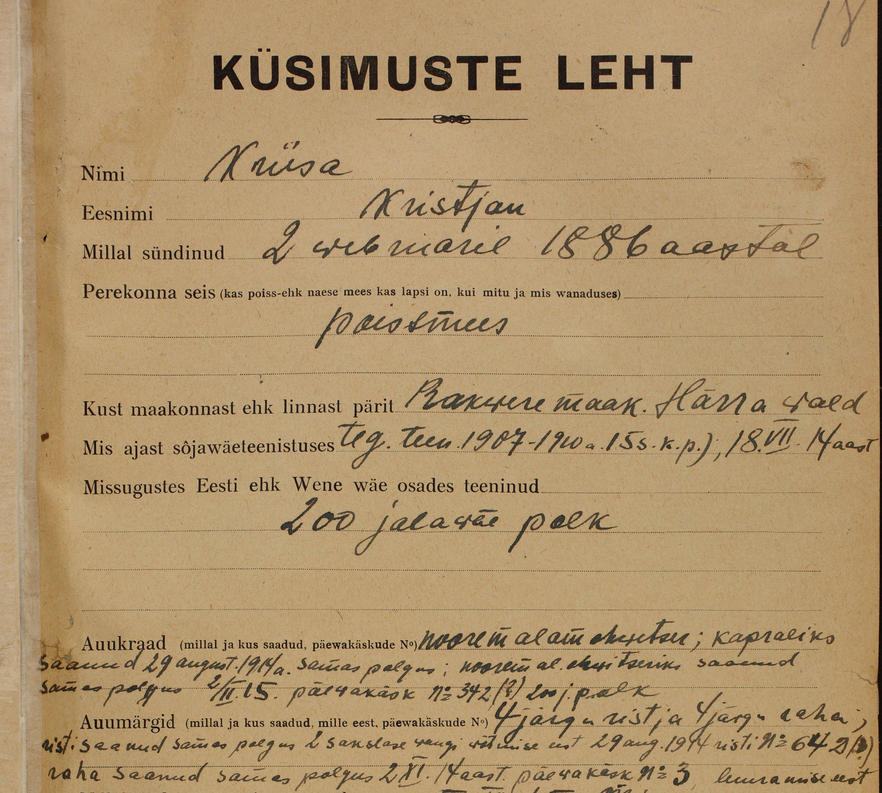 18
KÜSIMUSTE LEHT
Nimi Kriisa
Eesnimi Kristjan
Millal sündinud 2 webruaril 1886 aastal
Perekonna seis (kas poiss-ehk naese mees kas lapsi on, kui mitu ja mis wanaduses)
poissmees
Kust maakonnast ehk linnast pärit Rakwere maak. Härra wald
Mis ajast sôjawäeteenistuses teg. teen. 1907-1910 a. 18.VII. 14 aast
Missugustes Eesti ehk Wene wäe osades teeninud
200 jalawäe polk
Auukraad (millal ja kus saadud, päewakäskude No) noorem alam ohwitser; kapraliks
saanud 29 august. 1914 a. samas polgus; noorem al. ohwitseriks saanud
samas polgus 2/II.15. päewakäsk № 342 (?) 200 j. polk
Auumärgid (millal ja kus saadud, mille eest, päewakäskude No) 4 järgu rist ja 4 järgu raha;
risti saanud samas polgus 2 sakslase wangi wõtmise eest 29 aug. 1914 risti №
raha saanud samas polgus 2 XI. 14 aast. päewakäsk № 3, luuramise eest